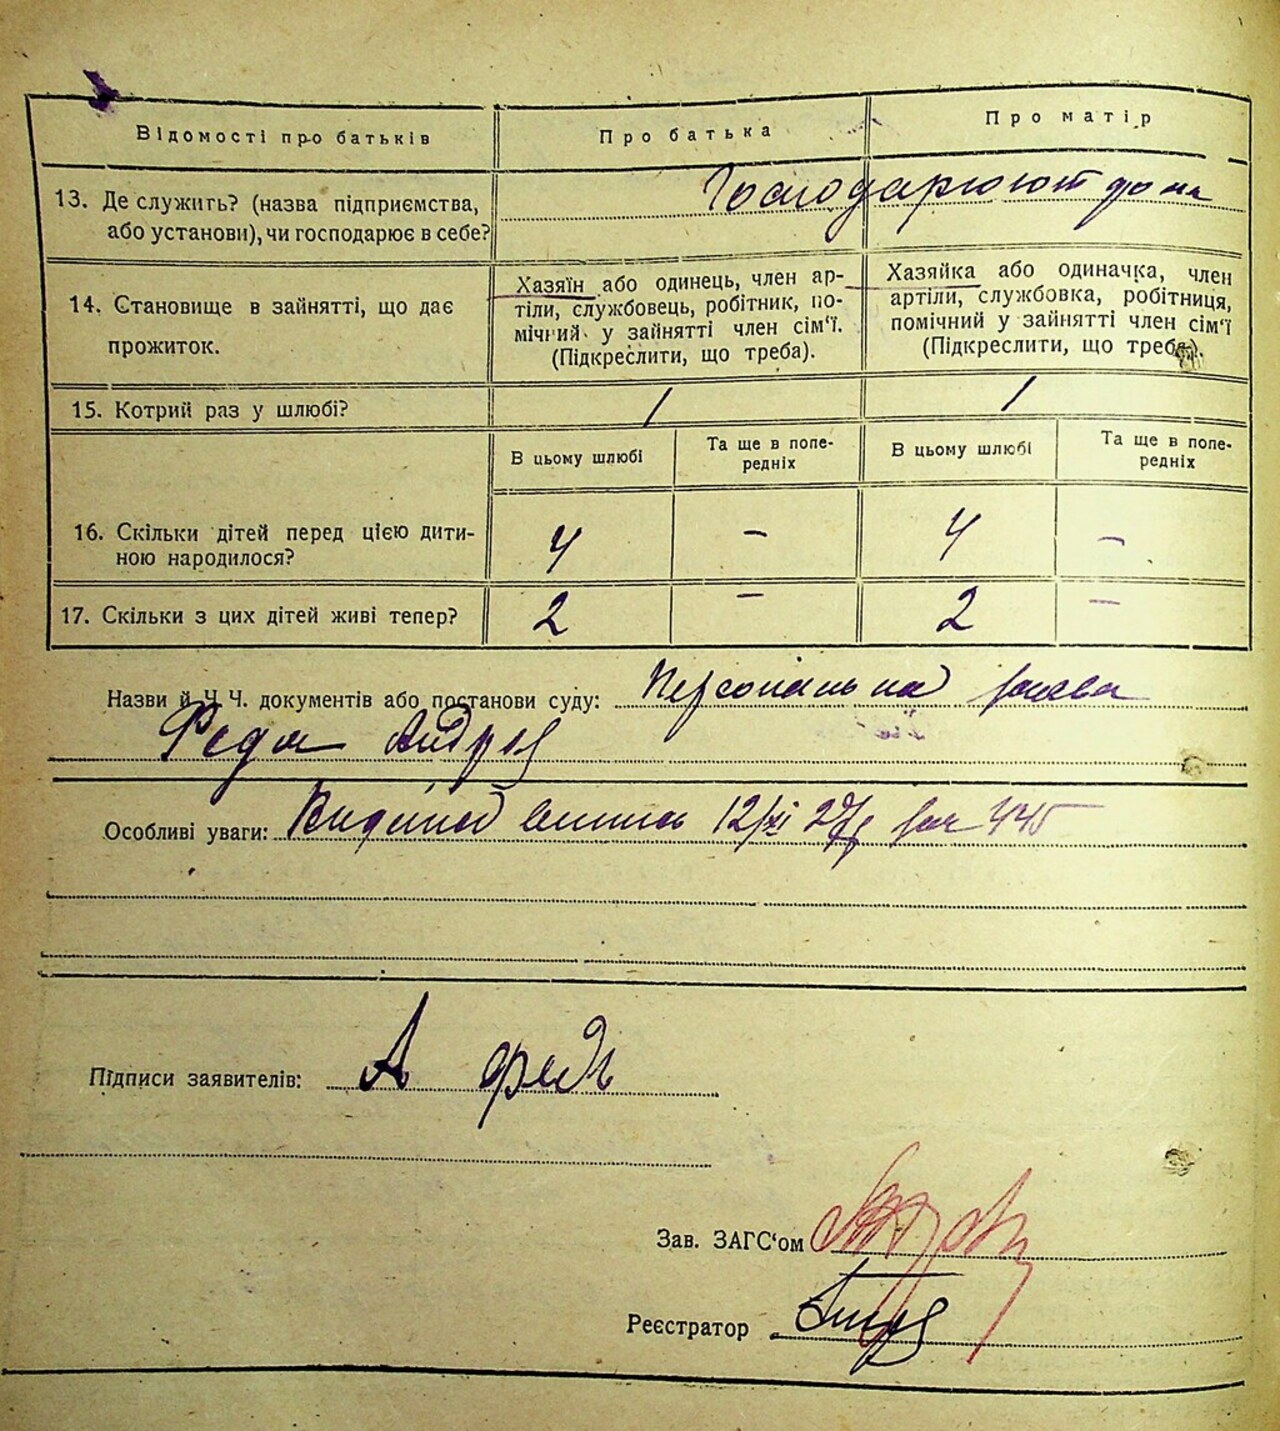 Відомості про батьків
Про батька
Про матір
13. Де служить? (назва підприємства,
або установи), чи господарює в себе?
Господарюют дома
14. Становище в зайнятті, що дає
прожиток.
Хазяїн або одинець, член ар-
тілі, службовець, робітник, по-
мічний у зайнятті член сім'ї.
(Підкреслити, що треба).
Хазяйка або одиначка, член
артілі, службовка, робітниця,
помічний у зайнятті член сім'ї
(Підкреслити, що треба).
15. Котрий раз у шлюбі?
1
1
В цьому шлюбі
Та ще в попе-
редніх
В цьому шлюбі
Та ще в попе-
редніх
16. Скільки дітей перед цією дити-
ною народилося?
4 – 4 –
17. Скільки з цих дітей живі тепер?
2 – 2 –
Назви й Ч.Ч. документів або постанови суду: Персональна заява
Федя Андрея
Особливі уваги: 12/XI за 445
Підписи заявителів: А Федь
Зав. ЗАГС'ом
Реєстратор